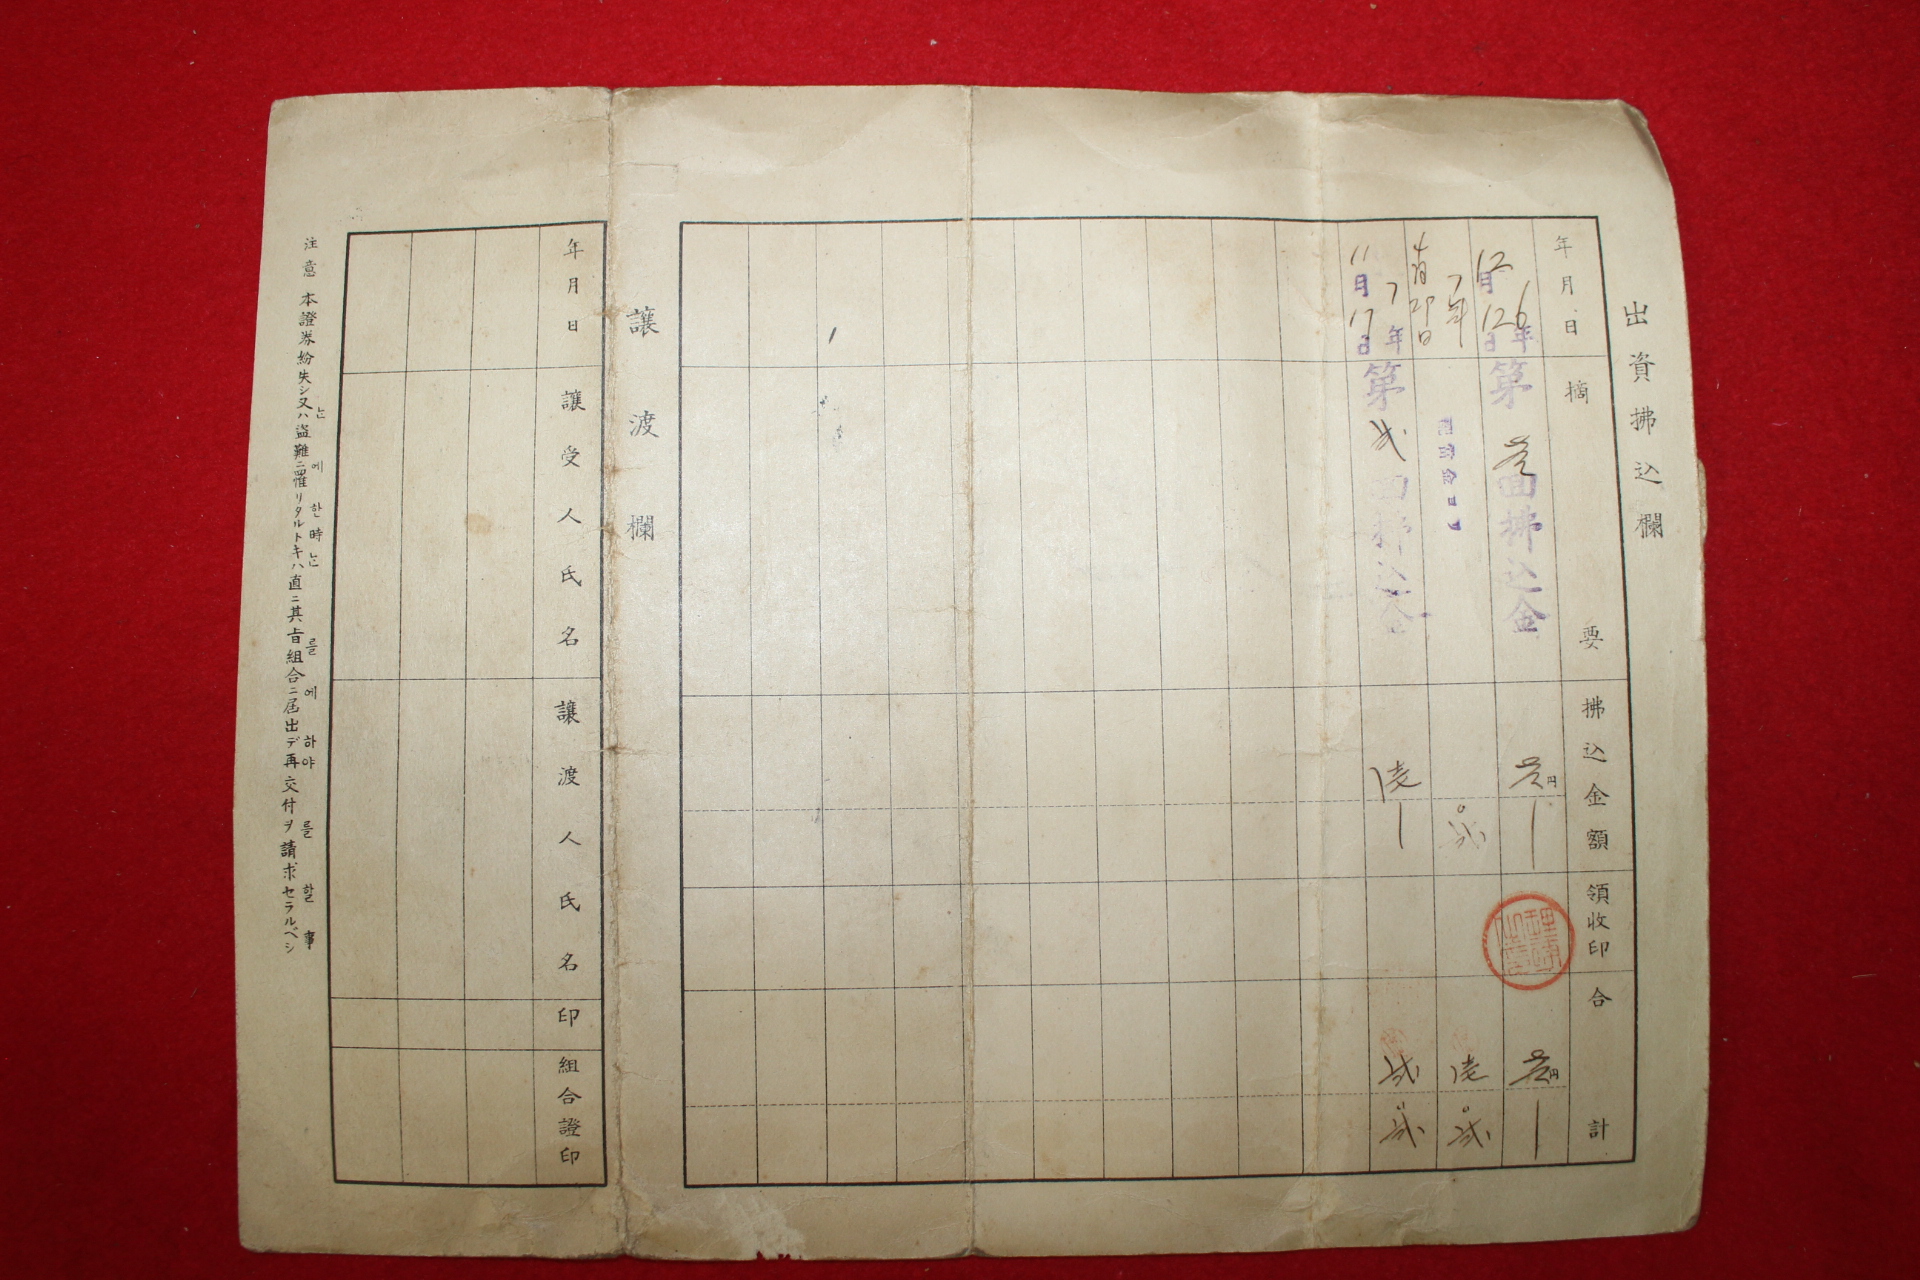 出資拂込欄
年月日
摘要
拂込金額
領收印
合計
12月12日
6年
第壱回拂込金
壱円
壱円
7年
11月17日
7年
第弐回拂込金
讓渡欄
年月日
讓受人氏名
讓渡人氏名
印
組合證印
注意 本證券紛失シ又ハ盜難ニ罹リタルトキハ直ニ其旨組合ニ届出デ再交付ヲ請求セラルベシ
는 에 한時는 를 에 하야 를 할事